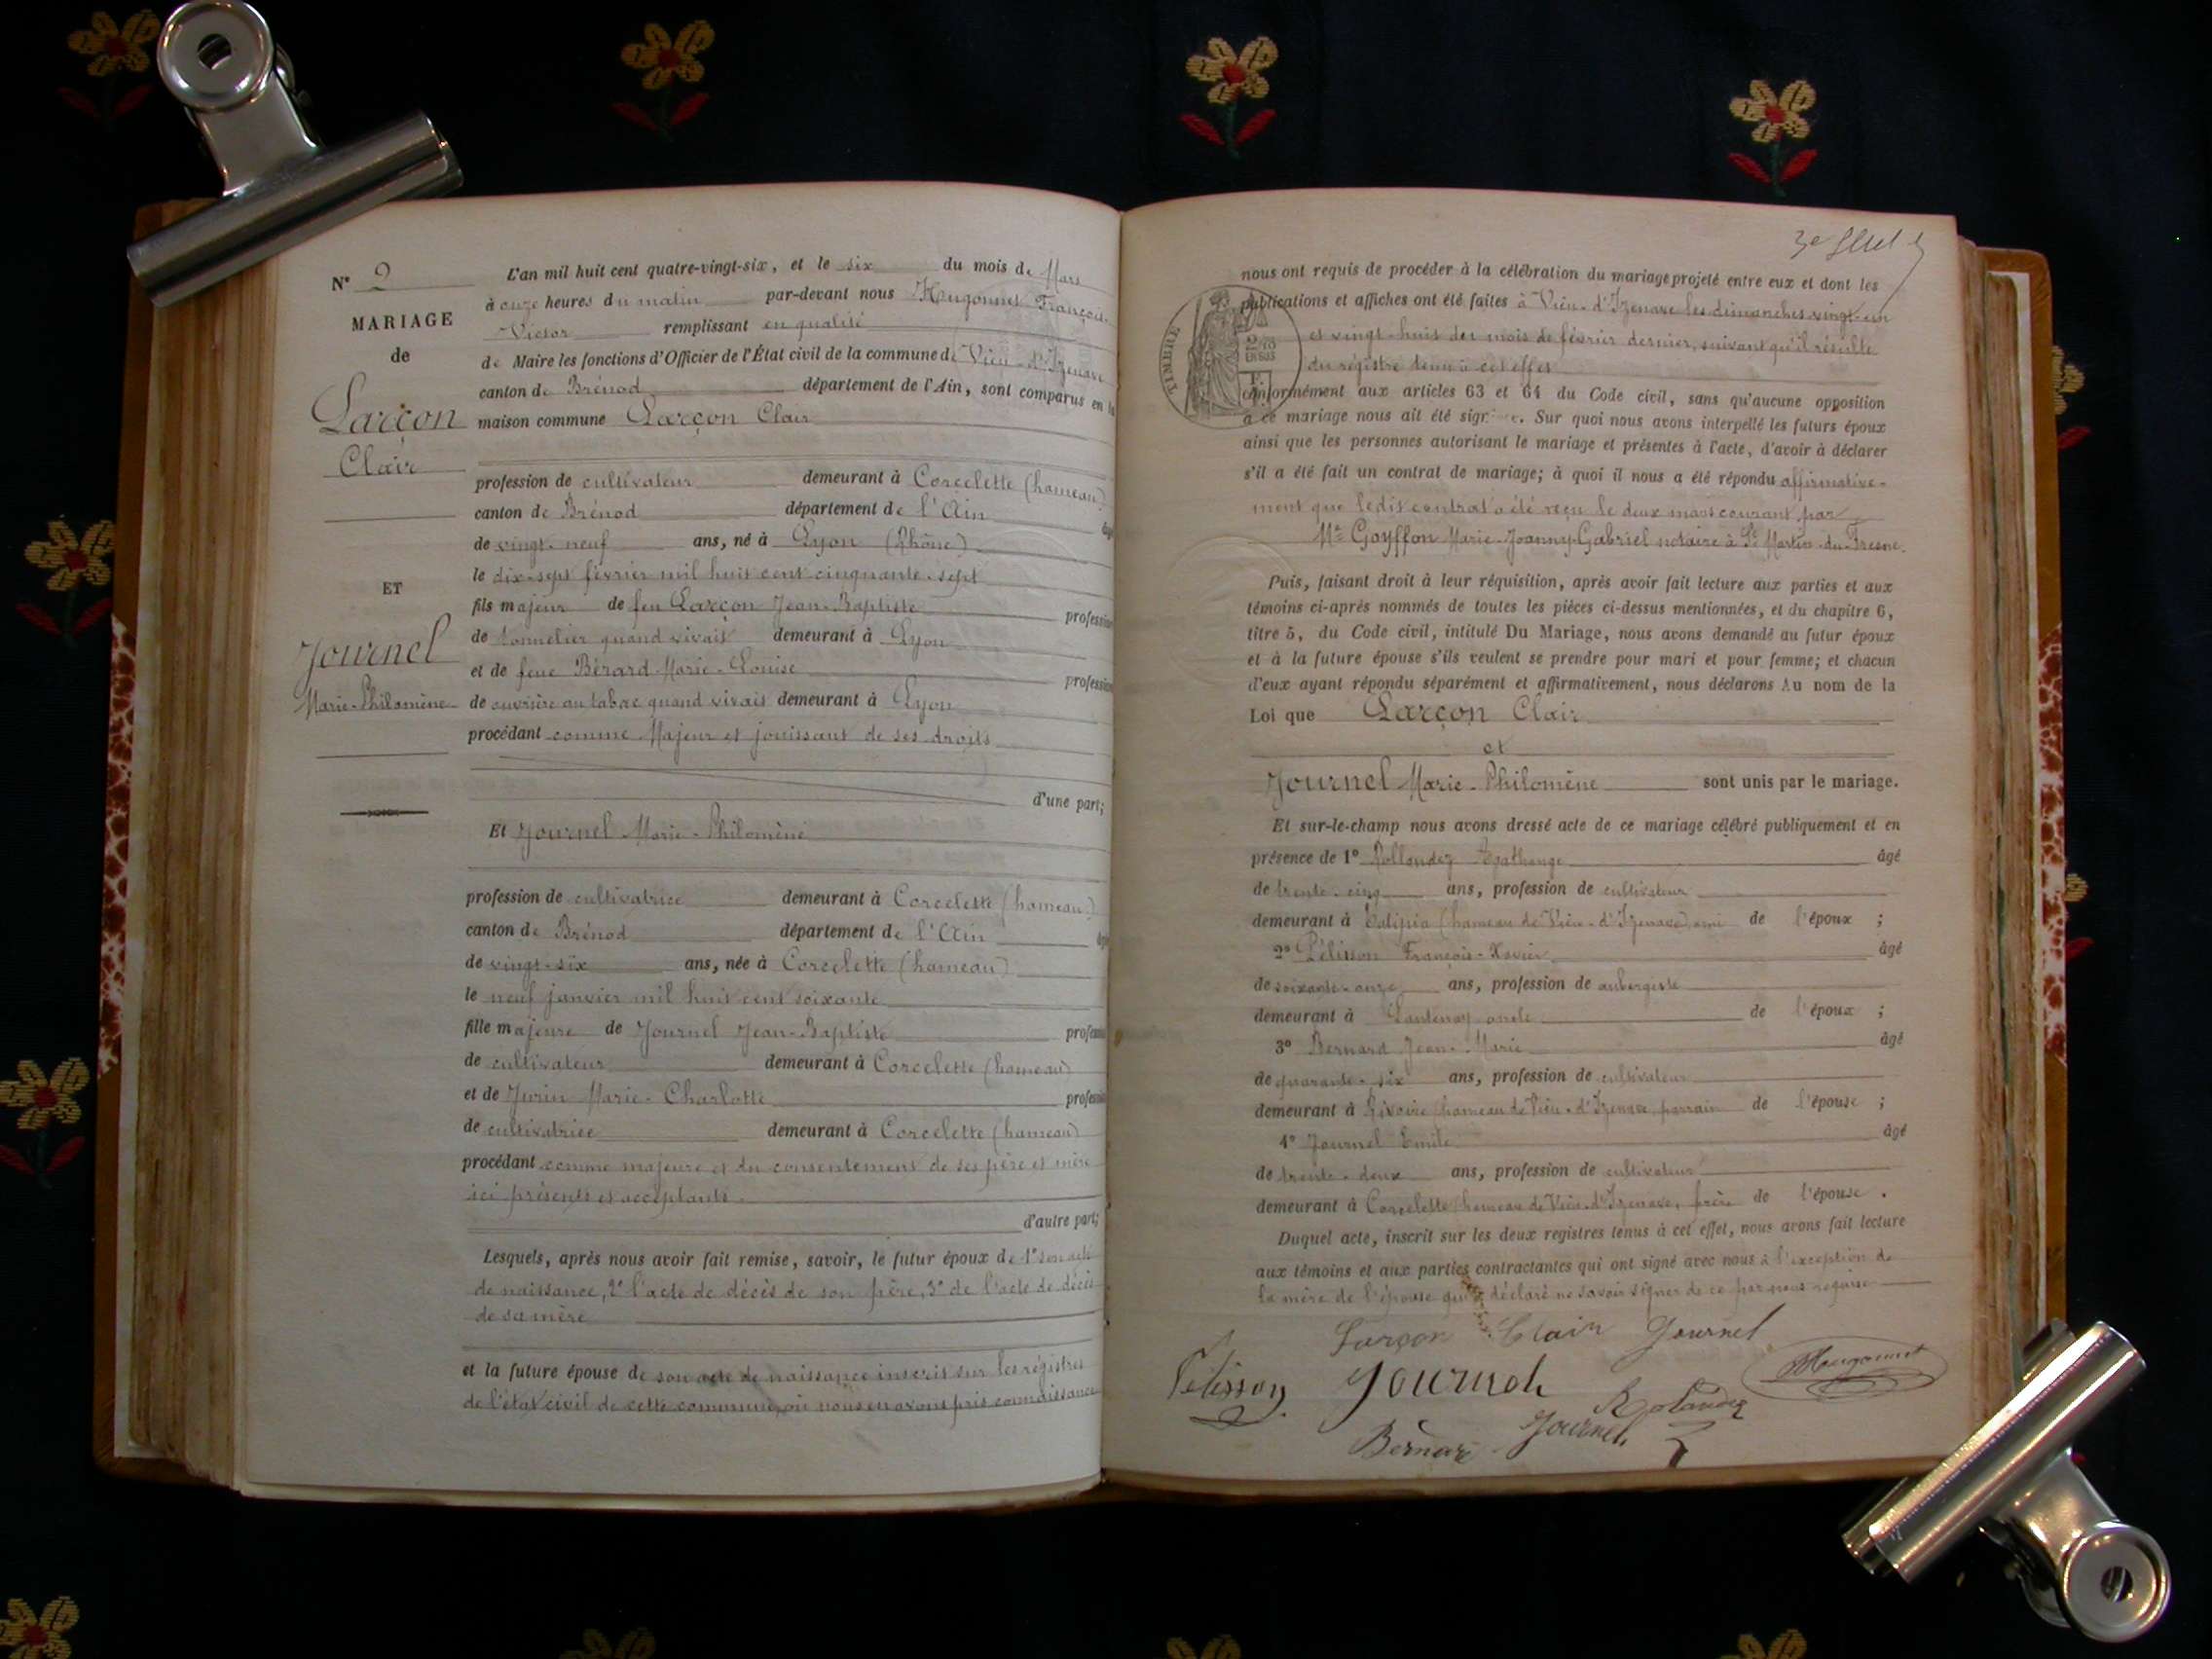 N° 2
MARIAGE
de
Larçon
Clair
ET
Journel
Marie-Philomène
L'an mil huit cent quatre-vingt-six, et le six du mois de Mars
à onze heures du matin par-devant nous Hugonnet François-
Victor remplissant en qualité
de Maire les fonctions d'Officier de l'État civil de la commune de Vieu-d'Izenave
canton de Brénod département de l'Ain, sont comparus en la
maison commune Larçon Clair
profession de cultivateur demeurant à Corcelette (hameau)
canton de Brénod département de l'Ain âgé
de vingt-neuf ans, né à Lyon (Rhône)
le dix-sept février mil huit cent cinquante-sept
fils majeur de feu Larçon Jean-Baptiste profession
de tonnelier quand vivait demeurant à Lyon
et de feue Bérard Marie-Louise profession
de ouvrière au tabac quand vivait demeurant à Lyon
procédant comme Majeur et jouissant de ses droits
d'une part;
Et Journel Marie-Philomène
profession de cultivatrice demeurant à Corcelette (hameau)
canton de Brénod département de l'Ain âgé
de vingt-six ans, née à Corcelette (hameau)
le neuf janvier mil huit cent soixante
fille majeure de Journel Jean-Baptiste profession
de cultivateur demeurant à Corcelette (hameau)
et de Jurin Marie-Charlotte profession
de cultivatrice demeurant à Corcelette (hameau)
procédant comme majeure et du consentement de ses père et mère
ici présents et acceptants.
d'autre part;
Lesquels, après nous avoir fait remise, savoir, le futur époux de 1° son acte
de naissance, 2° l'acte de décès de son père, 3° de l'acte de décès
de sa mère
et la future épouse de son acte de naissance inscrit sur les régistres
de l'état civil de cette commune, où nous en avons pris connaissance
nous ont requis de procéder à la célébration du mariage projeté entre eux et dont les
publications et affiches ont été faites à Vieu-d'Izenave les dimanches vingt-un
et vingt-huit du mois de février dernier, suivant qu'il résulte
du régistre tenu à cet effet
TIMBRE
conformément aux articles 63 et 64 du Code civil, sans qu'aucune opposition
à ce mariage nous ait été signifiée. Sur quoi nous avons interpellé les futurs époux
ainsi que les personnes autorisant le mariage et présentes à l'acte, d'avoir à déclarer
s'il a été fait un contrat de mariage; à quoi il nous a été répondu affirmative-
ment que ledit contrat a été reçu le deux mars courant par
Me Goyffon Marie-Joanny-Gabriel notaire à St Martin-du-Fresne.
Puis, faisant droit à leur réquisition, après avoir fait lecture aux parties et aux
témoins ci-après nommés de toutes les pièces ci-dessus mentionnées, et du chapitre 6,
titre 5, du Code civil, intitulé Du Mariage, nous avons demandé au futur époux
et à la future épouse s'ils veulent se prendre pour mari et pour femme; et chacun
d'eux ayant répondu séparément et affirmativement, nous déclarons Au nom de la
Loi que Larçon Clair
et
Journel Marie-Philomène sont unis par le mariage.
Et sur-le-champ nous avons dressé acte de ce mariage célébré publiquement et en
présence de 1° Rollandez Agathange âgé
de trente-cinq ans, profession de cultivateur
demeurant à (hameau de Vieu-d'Izenave) ami de l'époux ;
2° Pélisson François-Xavier âgé
de soixante-onze ans, profession de aubergiste
demeurant à Lantenay oncle de l'époux ;
3° Bernard Jean-Marie âgé
de quarante-six ans, profession de cultivateur
demeurant à Rivoire (hameau de Vieu-d'Izenave, parrain de l'épouse ;
4° Journel Emile âgé
de trente-deux ans, profession de cultivateur
demeurant à Corcelette (hameau de Vieu-d'Izenave, frère de l'épouse .
Duquel acte, inscrit sur les deux registres tenus à cet effet, nous avons fait lecture
aux témoins et aux parties contractantes qui ont signé avec nous à l'exception de
la mère de l'épouse qui a déclaré ne savoir signer de ce par nous requise
Larçon Clair Journel
Pélisson Journel Rolandez Hugonnet
Bernard Journel